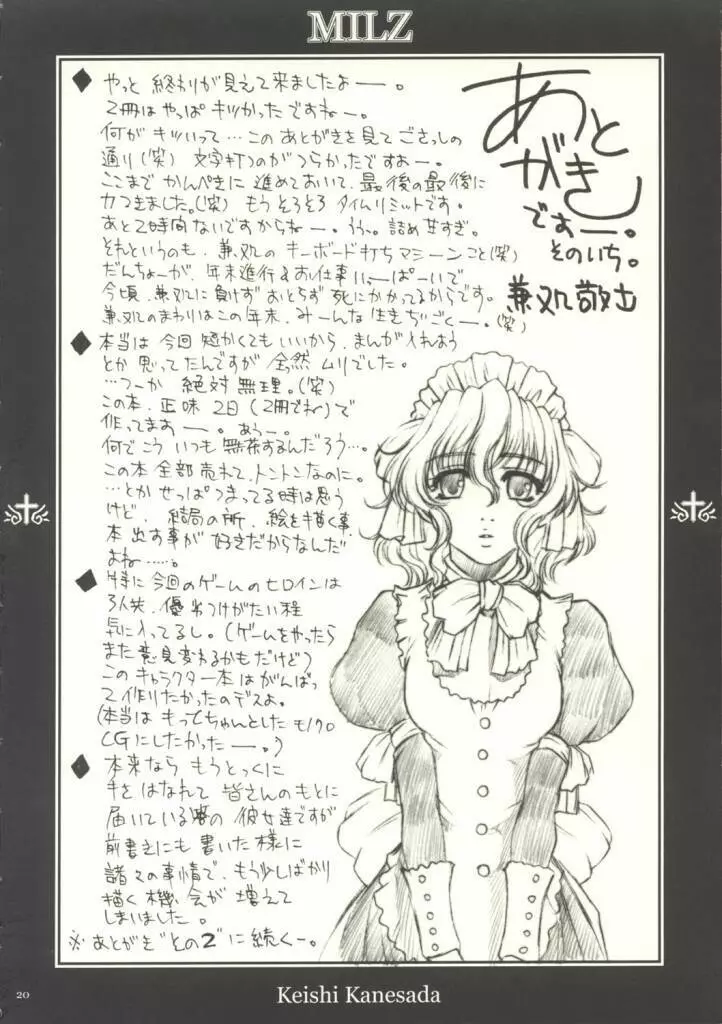 MILZ
あとがき
ですぉー。
そのいち。
兼処敬士
◆やっと 終わりが見えて来ましたよー。
2冊は やっぱ キツかったですねー。
何が キツいって…この あとがきを見て ごさっしの
通り(笑) 文字打つのが つらかったですぉー。
ここまで かんぺきに 進めておいて、最後の最後に
力つきました。(笑) もう そろそろ タイムリミットです。
あと2時間 ないですからねー。うぅ。詰め甘すぎ。
それというのも、兼処の キーボード打ちマシーンこと(笑)
だんちょーが、年末進行&お仕事いっぱーいで
今頃、兼処に負けず おとらず 死にかかってるからです。
兼処のまわりはこの年末、みーんな 生きぢごくー。(笑)
◆本当は 今回 短かくてもいいから、まんが入れよう
とか 思ってたんですが 全然 ムリでした。
…つーか 絶対 無理。(笑)
この本、正味 2日(2冊でね)で
作ってますぉー。あぅー。
何でこう いつも 無茶するんだろう…。
この本 全部 売れて、トントンなのに。
…とか せっぱ つまってる時は思う
けど、結局の所、絵を描く事
本 出す事が 好きだからなんだ
よね……。
◆特に 今回のゲームのヒロインは
3人共、優劣つけがたい程
気に入ってるし。(ゲームをやったら
また 意見変わるかもだけど)
このキャラクター本は がんばっ
て作りたかったのデスよ。
(本当は もってちゃんとした モノクロ
CGにしたかったー。)
◆本来なら もうとっくに
手を はなれて 皆さんの もとに
届いている筈の 彼女達ですが
前書きにも 書いた様に
諸々の事情で、もう少しばかり
描く機会が 増えて
しまいました。
※あとがき"その2"に続くー。
20
Keishi Kanesada